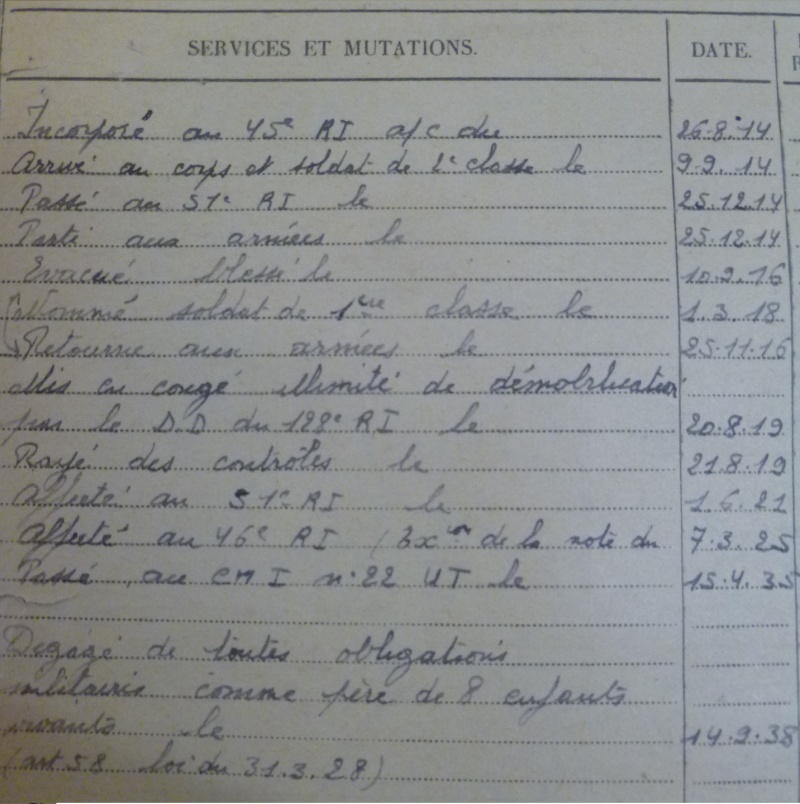 SERVICES ET MUTATIONS. DATE.
Incorporé au 45e RI a/c du 26.8.14
Arrivé au corps et soldat de 2e classe le 9.9.14
Passé au 51e RI le 25.12.14
Parti aux armées le 25.12.14
Evacué blessé le 10.9.16
Nommé soldat de 1ere classe le 1.3.18
Retourne aux armées le 25.11.16
Mis en congé illimité de démobilisation
par le D.D du 128e RI le 20.8.19
Rayé des contrôles le 21.8.19
Affecté au 51e RI le 1.6.21
Affecté au 46e RI (Exon de la note du 7.3.25
Passé au CMI n°22 UT le 15.4.35
Dégagé de toutes obligations
militaires comme père de 8 enfants
vivants le 14.9.38
(art 58 loi du 31.3.28)